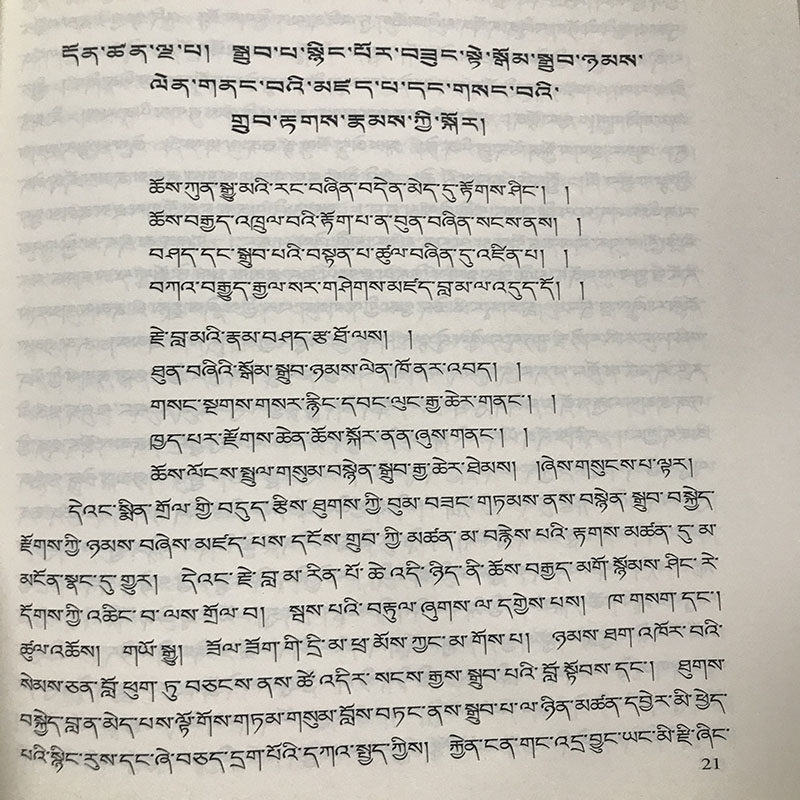 དོན་ཚན་ལྔ་པ། སྒྲུབ་པ་སྙིང་པོར་བཟུང་སྟེ་སྒོམ་སྒྲུབ་ཉམས་
ལེན་གནང་བའི་མཛད་པ་དང་གསང་བའི་
གྲུབ་རྟགས་རྣམས་ཀྱི་སྐོར།
ཆོས་ཀུན་སྒྱུ་མའི་རང་བཞིན་བདེན་མེད་དུ་རྟོགས་ཤིང་། །
ཆོས་བརྒྱད་འཁྲུལ་བའི་རྟོག་པ་ན་བུན་བཞིན་སངས་ནས། །
བཤད་དང་སྒྲུབ་པའི་བསྟན་པ་ཚུལ་བཞིན་དུ་འཛིན་པ། །
བཀའ་བརྒྱུད་རྒྱལ་སར་གཤེགས་མཛད་བླ་མ་ལ་འདུད་དོ། །
རྗེ་བླ་མའི་རྣམ་བཤད་རྩ་ཐོ་ལས། །
ཐུན་བཞིའི་སྒོམ་སྒྲུབ་ཉམས་ལེན་ཁོ་ནར་འབད། །
གསང་སྔགས་གསར་རྙིང་དབང་ལུང་རྒྱ་ཆེར་གནང་། །
ཁྱད་པར་རྫོགས་ཆེན་ཆོས་སྐོར་ནན་ཞུས་གནང་། །
ཆོས་ལོངས་སྤྲུལ་གསུམ་བསྙེན་སྒྲུབ་རྒྱ་ཆེར་ཐེམས། །ཞེས་གསུངས་པ་ལྟར།
དེའང་སྨིན་གྲོལ་གྱི་བདུད་རྩིས་ཐུགས་ཀྱི་བུམ་བཟང་གཏམས་ནས་བསྙེན་སྒྲུབ་བསྐྱེད་
རྫོགས་ཀྱི་ཉམས་བཞེས་མཛད་པས་དངོས་གྲུབ་ཀྱི་མཚན་མ་བརྙེས་པའི་རྟགས་མཚན་དུ་མ་
མངོན་སྣང་དུ་གྱུར། དེའང་རྗེ་བླ་མ་རིན་པོ་ཆེ་འདི་ཉིད་ནི་ཆོས་བརྒྱད་མགོ་སྙོམས་ཤིང་རེ་
དོགས་ཀྱི་འཆིང་བ་ལས་གྲོལ་བ། སྦས་པའི་བརྟུལ་ཞུགས་ལ་དགྱེས་པས། ཁ་གསག་དང་།
ཚུལ་འཆོས། གཡོ་སྒྱུ། ཟོལ་ཟོག་གི་དྲི་མ་ཕྲ་མོས་ཀྱང་མ་གོས་པ། ཉམས་ཐག་འཁོར་བའི་
སེམས་ཅན་བློ་ཕུག་ཏུ་བཅངས་ནས་ཚེ་འདིར་སངས་རྒྱས་སྒྲུབ་པའི་བློ་སྟོབས་དང་། ཐུགས་
བསྐྱེད་བླན་མེད་པས་ལྟོ་གོས་གཏམ་གསུམ་བློས་བཏང་ནས་སྒྲུབ་པ་ལ་ཉིན་མཚན་དབྱེར་མི་ཕྱེད་
པའི་སྙིང་རུས་དང་ཞེ་བཅད་དྲག་པོའི་དཀའ་སྤྱད་ཀྱིས། རྐྱེན་ངན་གང་འདྲ་བྱུང་ཡང་མི་རྫི་ཞིང་
21